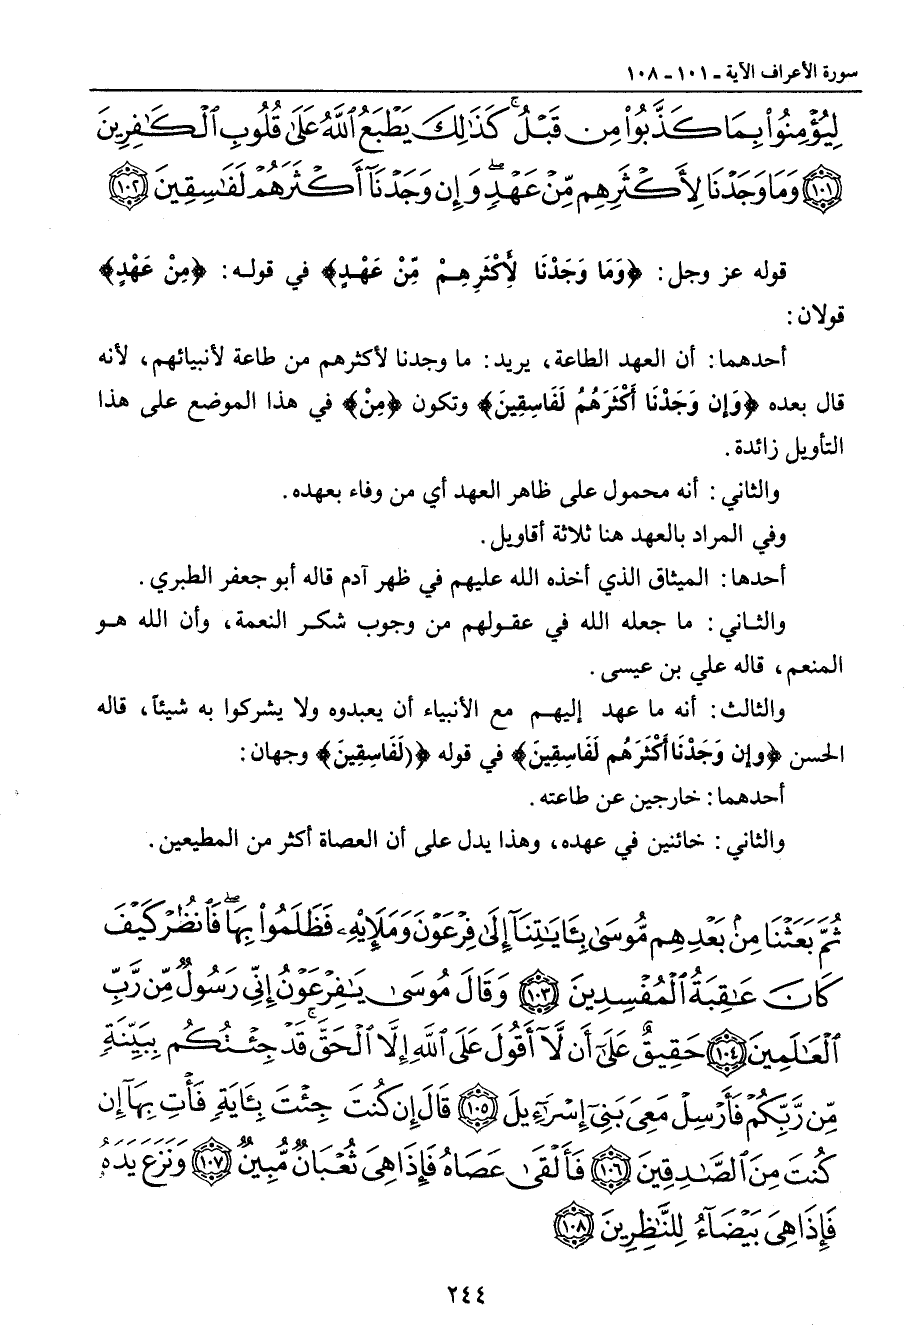 سورة الأعراف الآية ـ ١٠١ ـ ١٠٨
لِيُؤْمِنُوا۟ بِمَا كَذَّبُوا۟ مِن قَبْلُ ۚ كَذَٰلِكَ يَطْبَعُ ٱللَّهُ عَلَىٰ قُلُوبِ ٱلْكَٰفِرِينَ
١٠١ وَمَا وَجَدْنَا لِأَكْثَرِهِم مِّنْ عَهْدٍ ۖ وَإِن وَجَدْنَآ أَكْثَرَهُمْ لَفَٰسِقِينَ ١٠٢
قوله عز وجل: ﴿وَمَا وَجَدْنَا لِأَكْثَرِهِمْ مِّنْ عَهْدٍ﴾ في قوله: ﴿مِنْ عَهْدٍ﴾
قولان:
أحدهما: أن العهد الطاعة، يريد: ما وجدنا لأكثرهم من طاعة لأنبيائهم، لأنه
قال بعده ﴿وَإِن وَجَدْنَا أَكْثَرَهُمُ لَفَاسِقِينَ﴾ وتكون ﴿مِنْ﴾ في هذا الموضع على هذا
التأويل زائدة.
والثاني: أنه محمول على ظاهر العهد أي من وفاء بعهده.
وفي المراد بالعهد هنا ثلاثة أقاويل.
أحدها: الميثاق الذي أخذه الله عليهم في ظهر آدم قاله أبو جعفر الطبري.
والثاني: ما جعله الله في عقولهم من وجوب شكر النعمة، وأن الله هو
المنعم، قاله علي بن عيسى.
والثالث: أنه ما عهد إليهم مع الأنبياء أن يعبدوه ولا يشركوا به شيئاً، قاله
الحسن ﴿وإن وَجَدْنَا أَكْثَرَهُم لَفَاسِقِينَ﴾ في قوله ﴿(لَفَاسِقِينَ﴾ وجهان:
أحدهما: خارجين عن طاعته.
والثاني: خائنين في عهده، وهذا يدل على أن العصاة أكثر من المطيعين.
ثُمَّ بَعَثْنَا مِنۢ بَعْدِهِم مُّوسَىٰ بِـَٔايَٰتِنَآ إِلَىٰ فِرْعَوْنَ وَمَلَإِي۟هِۦ فَظَلَمُوا۟ بِهَا ۖ فَٱنظُرْ كَيْفَ
كَانَ عَٰقِبَةُ ٱلْمُفْسِدِينَ ١٠٣ وَقَالَ مُوسَىٰ يَٰفِرْعَوْنُ إِنِّى رَسُولٌ مِّن رَّبِّ
ٱلْعَٰلَمِينَ ١٠٤ حَقِيقٌ عَلَىٰٓ أَن لَّآ أَقُولَ عَلَى ٱللَّهِ إِلَّا ٱلْحَقَّ ۚ قَدْ جِئْتُكُم بِبَيِّنَةٍ
مِّن رَّبِّكُمْ فَأَرْسِلْ مَعِىَ بَنِىٓ إِسْرَٰٓءِيلَ ١٠٥ قَالَ إِن كُنتَ جِئْتَ بِـَٔايَةٍ فَأْتِ بِهَآ إِن
كُنتَ مِنَ ٱلصَّٰدِقِينَ ١٠٦ فَأَلْقَىٰ عَصَاهُ فَإِذَا هِىَ ثُعْبَانٌ مُّبِينٌ ١٠٧ وَنَزَعَ يَدَهُۥ
فَإِذَا هِىَ بَيْضَآءُ لِلنَّٰظِرِينَ ١٠٨
٢٤٤